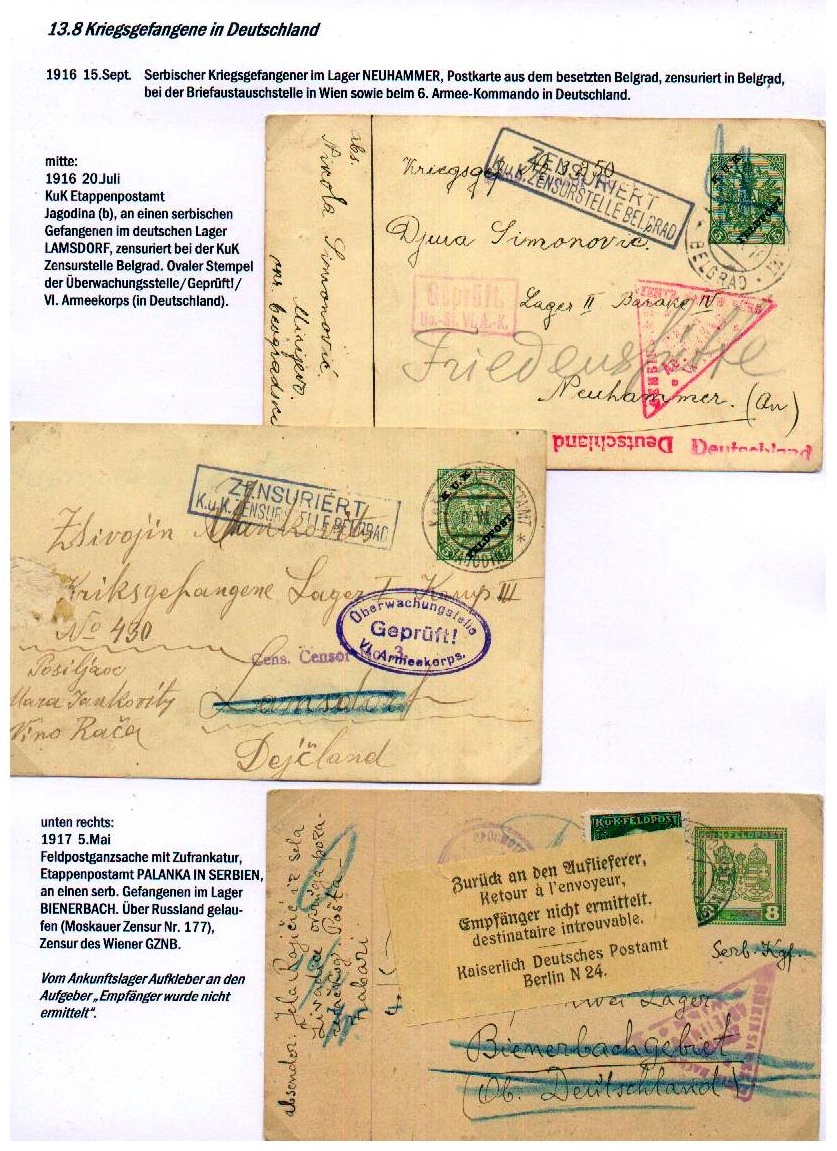 13.8 Kriegsgefangene in Deutschland
1916 15.Sept. Serbischer Kriegsgefangener im Lager NEUHAMMER, Postkarte aus dem besetzten Belgrad, zensuriert in Belgrad,
bei der Briefaustauschstelle in Wien sowie beim 6. Armee-Kommando in Deutschland.
mitte:
1916 20Juli
KuK Etappenpostamt
Jagodina (b), an einen serbischen
Gefangenen im deutschen Lager
LAMSDORF, zensuriert bei der KuK
Zensurstelle Belgrad. Ovaler Stempel
der Überwachungsstelle/Geprüft!/
VI. Armeekorps (in Deutschland).
abs.
Nikola Simonović
Mirijevo
beogradski
Kriegsgef
ZENSURIERT
K.u.K. ZENSURSTELLE BELGRAD
K.U.K.
FELDPOST
5
BELGRAD
Djura Simonović.
Geprüft.
Lager II Barake IV
Friedenshütte
Neuhammer. (An)
Deutschland
Deutschland
ZENSURIERT
K.u.K. ZENSURSTELLE BELGRAD
K.U.K.
FELDPOST
5
Živojin Jankovits
Kriksgefangene Lager I Kamp III
No 430
Überwachungsstelle
Geprüft!
VI. Armeekorps.
Cens. Censor No. 3.
Posiljaoc
Mara Jankovity
Vino Rača
Lamsdorf
Dejčland
unten rechts:
1917 5.Mai
Feldpostganzsache mit Zufrankatur,
Etappenpostamt PALANKA IN SERBIEN,
an einen serb. Gefangenen im Lager
BIENERBACH. Über Russland gelau-
fen (Moskauer Zensur Nr. 177),
Zensur des Wiener GZNB.
Vom Ankunftslager Aufkleber an den
Aufgeber „Empfänger wurde nicht
ermittelt“.
absendor: Jela Pajičić iz sela
Livadica
Pošta
Žabari
K.U.K. FELDPOST
K.U.K. FELDPOST
8
Zurück an den Auflieferer,
Retour à l'envoyeur,
Empfänger nicht ermittelt.
destinataire introuvable.
Kaiserlich Deutsches Postamt
Berlin N 24.
Serb. Kgf.
Lager
Bienerbachgebiet
(Ob. Deutschland)